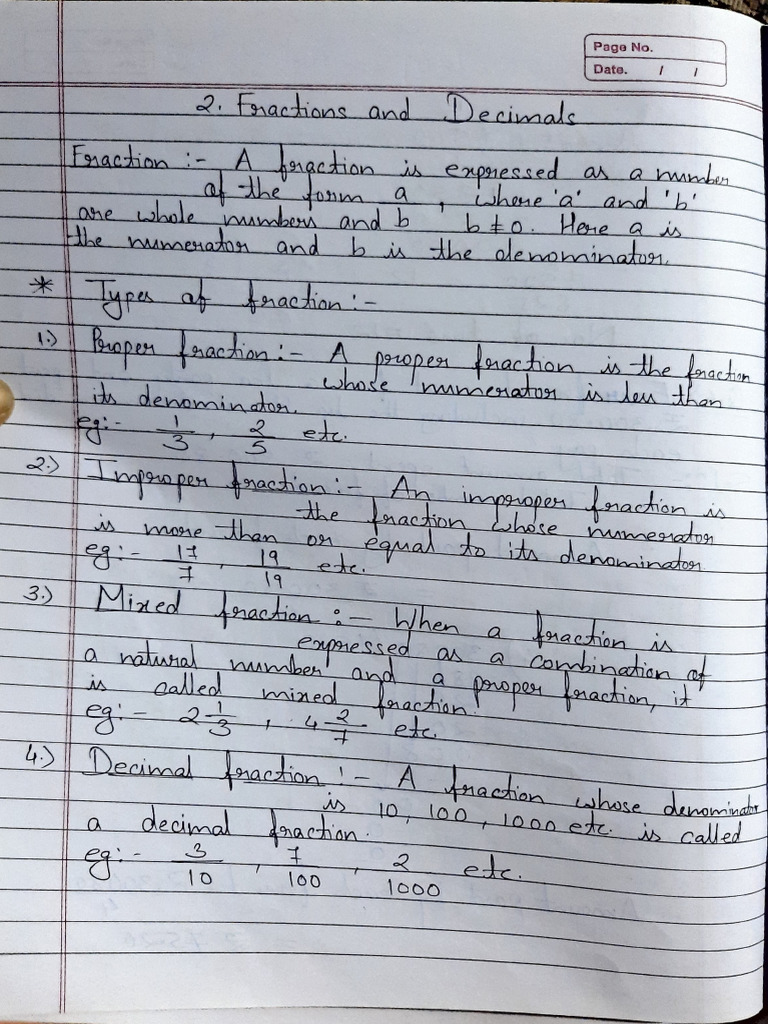 Page No.
Date. / /
2. Fractions and Decimals
Fraction :- A fraction is expressed as a number
of the form a , where 'a' and 'b'
are whole numbers and b b ≠ 0. Here a is
the numerator and b is the denominator.
* Types of fraction :-
1.) Proper fraction :- A proper fraction is the fraction
whose numerator is less than
its denominator.
eg:- 1/3, 2/5 etc.
2.) Improper fraction :- An improper fraction is
the fraction whose numerator
is more than or equal to its denominator.
eg:- 17/7, 19/19 etc.
3.) Mixed fraction :- When a fraction is
expressed as a combination of
a natural number and a proper fraction, it
is called mixed fraction.
eg:- 2 1/3, 4 2/7 etc.
4.) Decimal fraction :- A fraction whose denominator
is 10, 100, 1000 etc. is called
a decimal fraction.
eg:- 3/10, 7/100, 2/1000 etc.